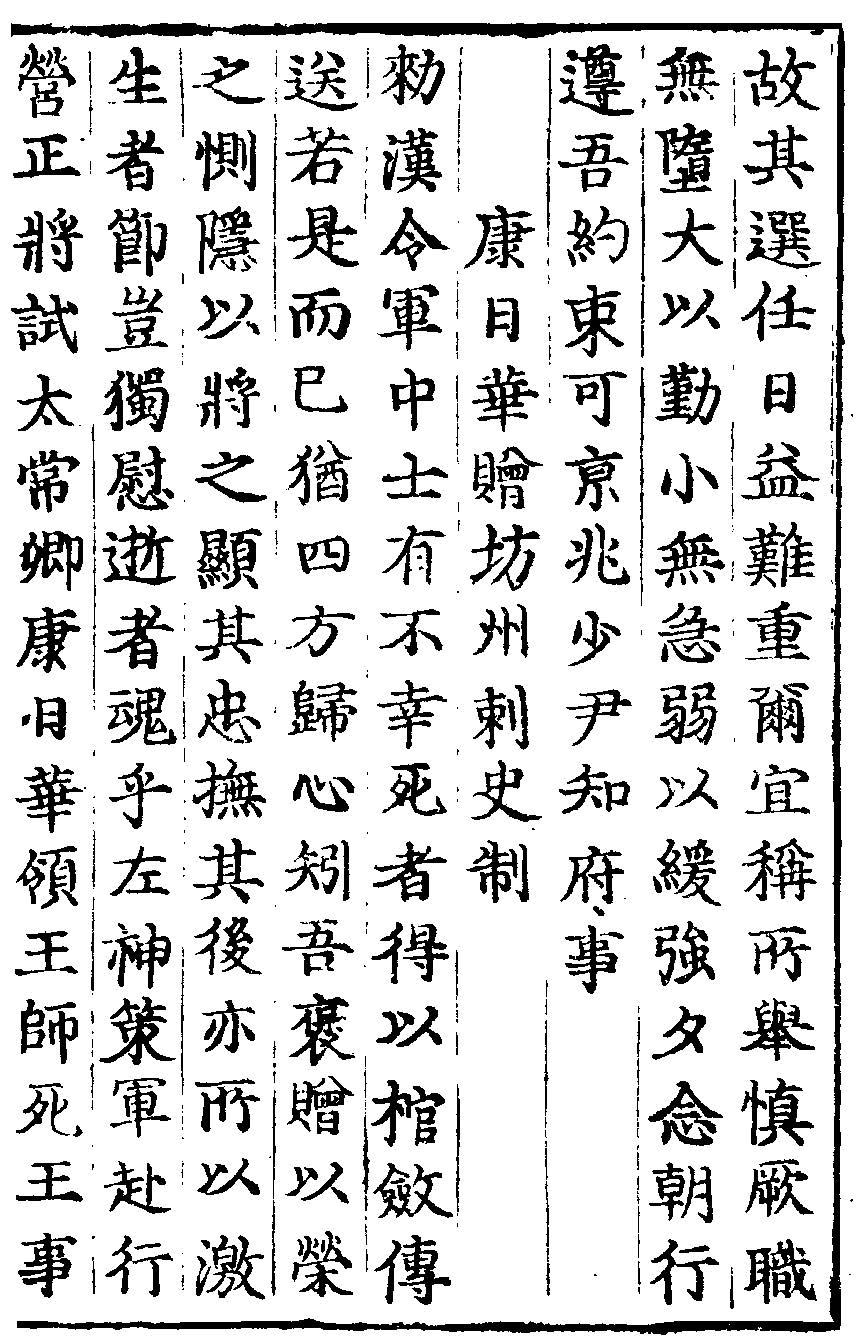 故其選任日益難重爾宜稱所舉慎厥職
無墮大以勤小無急弱以緩強夕念朝行
遵吾約束可京兆少尹知府事
康日華贈坊州刺史制
勑漢令軍中士有不幸死者得以棺斂傳
送若是而已猶四方歸心矧吾褒贈以榮
之惻隱以將之顯其忠撫其後亦所以激
生者節豈獨慰逝者魂乎左神策軍赴行
營正將試太常卿康日華領王師死王事